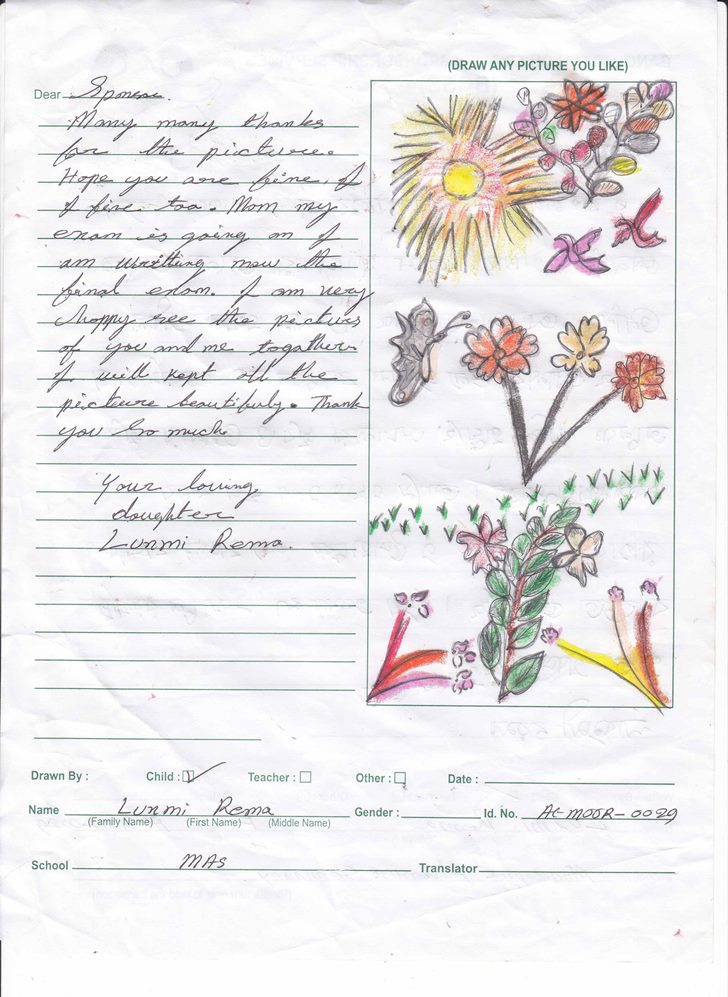 (DRAW ANY PICTURE YOU LIKE)
Dear Sponsor.
Many many thanks
for the picture.
Hope you are fine. I
I fine too. Mom my
exam is going on I
am writting now the
final exam. I am very
happy see the pictures
of you and me together.
I will kept all the
picture beautifuly. Thank
you so much
Your loving
doughter
Lunmi Rema.
Drawn By : Child : Teacher : Other : Date :
Name Lunmi Rema Gender : Id. No. AC-MOOR-0029
(Family Name) (First Name) (Middle Name)
School MAS Translator